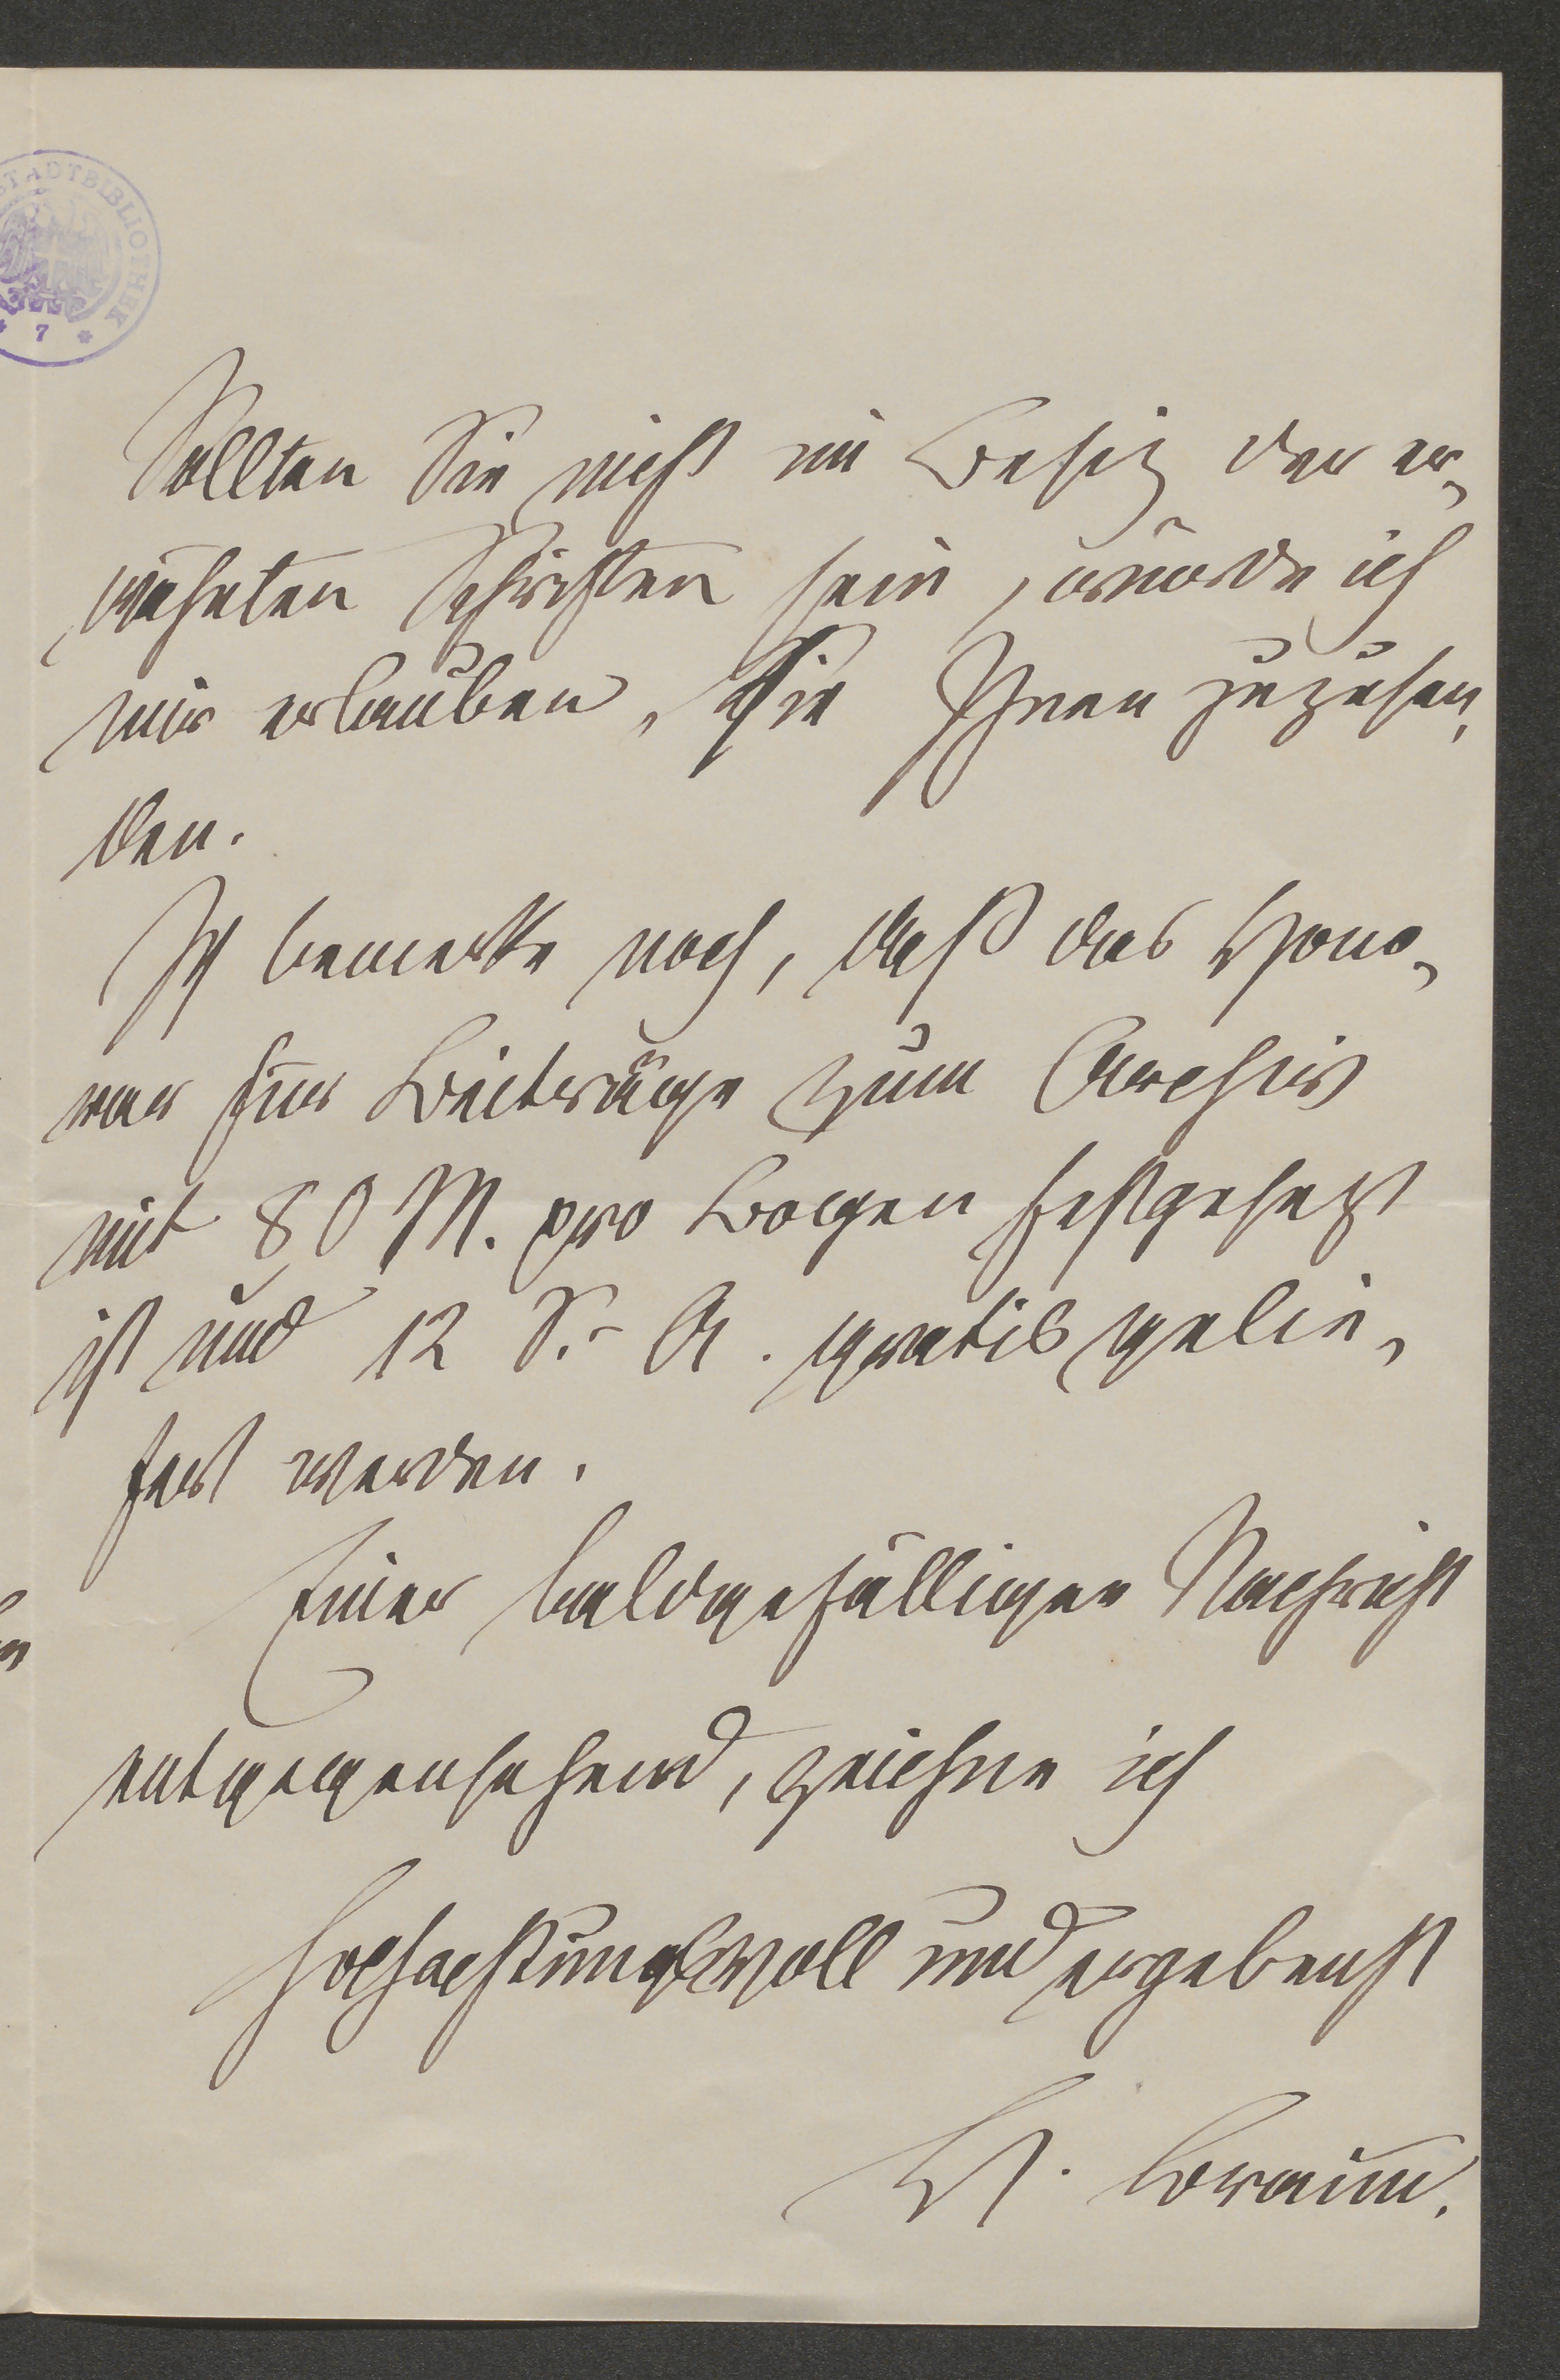 STADTBIBLIOTHEK
* 7 *
Sollten Sie nicht im Besitz der er-
wähnten Schriften sein, würde ich
mir erlauben, sie Ihnen zuzusen-
den.
Ich bemerke noch, daß das Hono-
rar für Beiträge zum Archiv
mit 80 M. pro Bogen festgesetzt
ist und 12 S.-A. gratis gelie-
fert werden.
Einer baldgefälligen Nachricht
entgegensehend, zeichne ich
hochachtungsvoll und ergebenst
H. Braun.